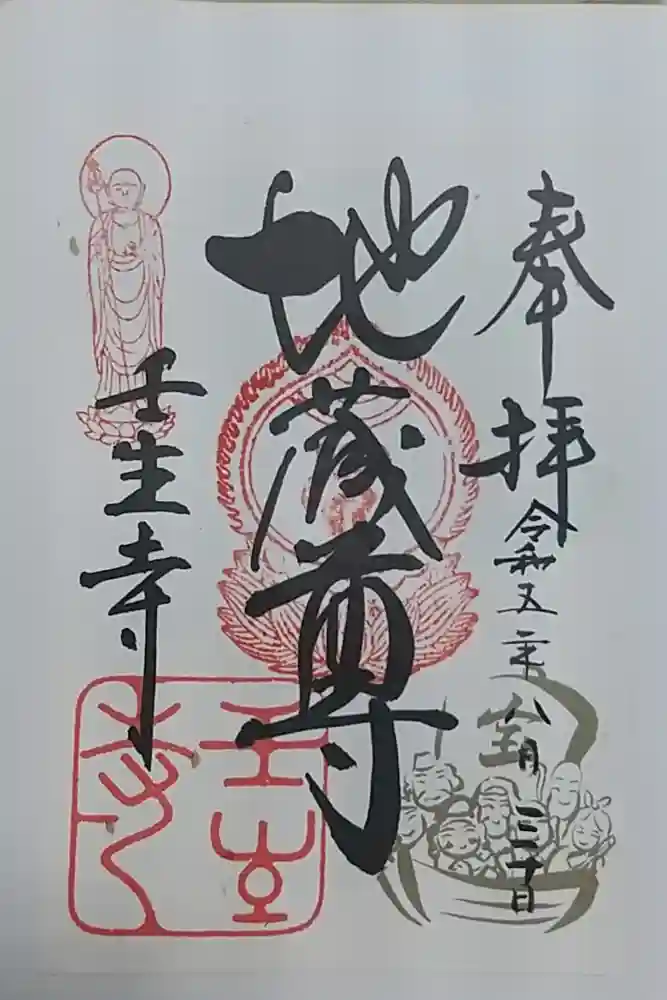 奉拝
令和五年八月三十日
宝
地蔵尊
壬生寺
壬生寺